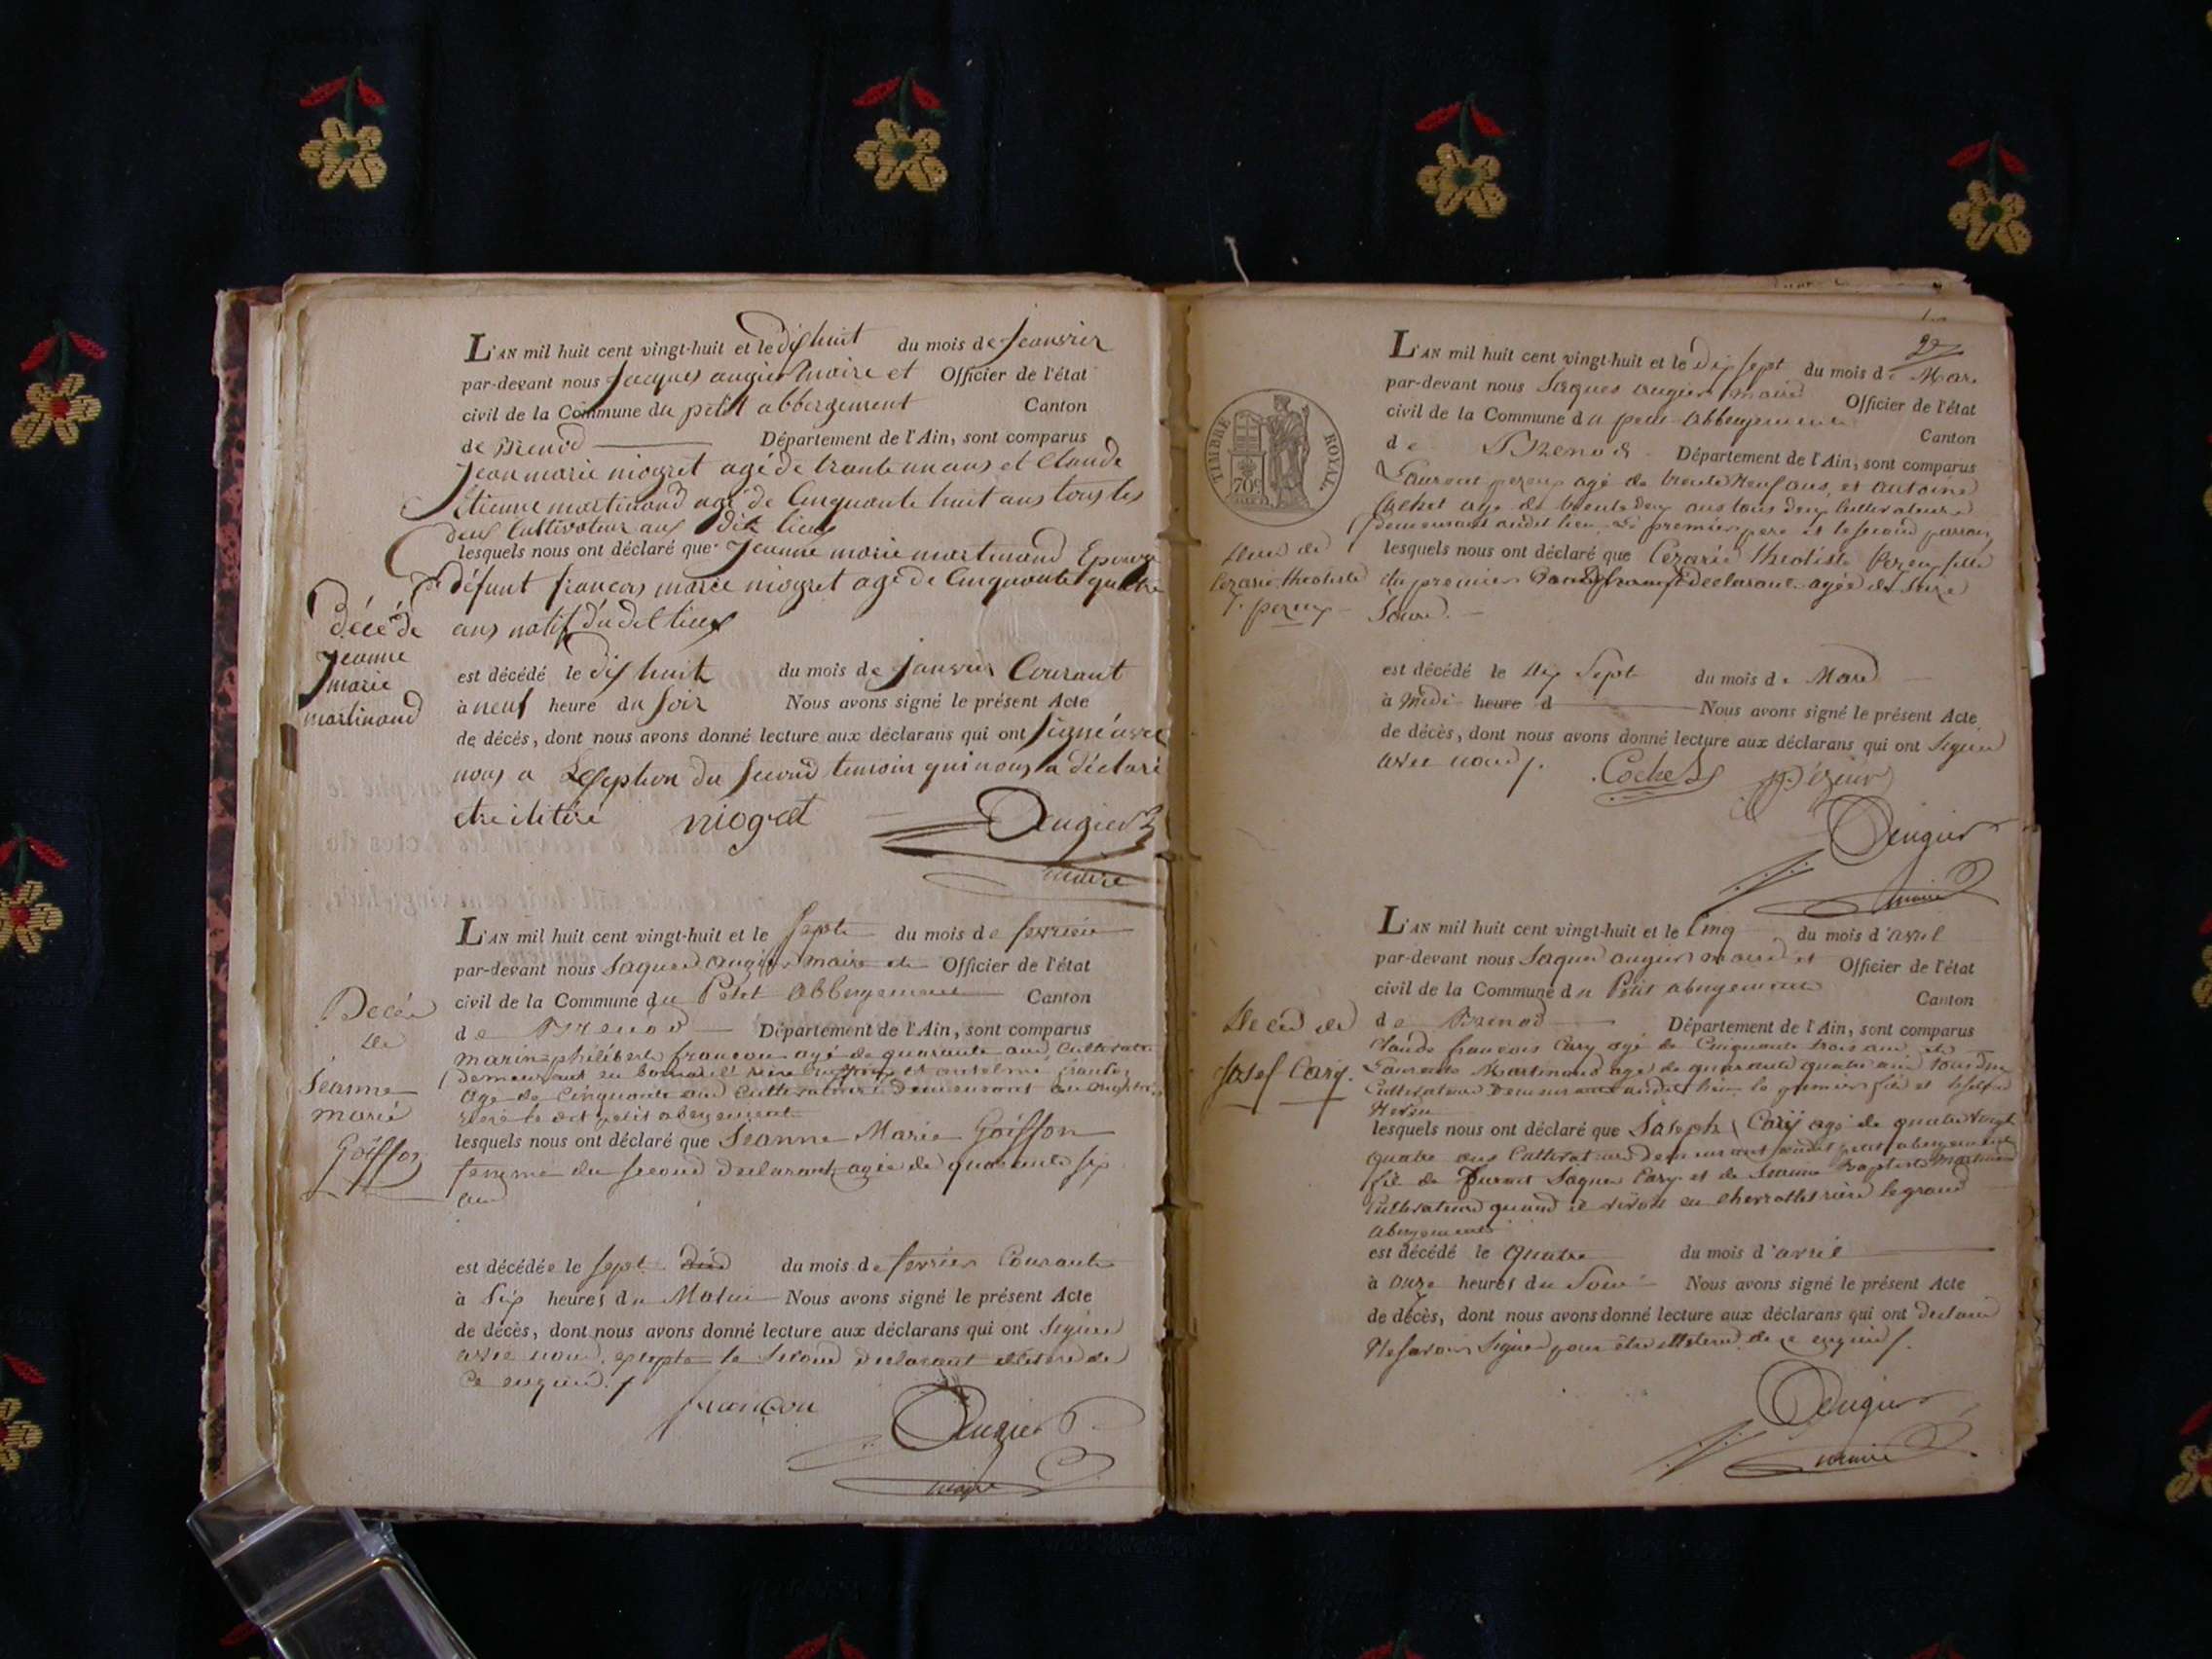 L'AN mil huit cent vingt-huit et le dix huit du mois de Janvier
par-devant nous Jacques augier maire et Officier de l'état
civil de la Commune du petit abbergement Canton
de Brenod Département de l'Ain, sont comparus
Jean marie niogret agé de trante un ans et Claude
Etienne martinand agé de Cinquante huit ans tous les
deux Cultivateur aux dit lieux
lesquels nous ont déclaré que Jeanne marie martinand Epouse
défunt francois marie niogret agé de Cinquante quatre
ans natif du dit lieux
Décé de
Jeanne
marie
martinand
est décédé le dix huit du mois de Janvier Courant
à neuf heure du soir Nous avons signé le présent Acte
de décés, dont nous avons donné lecture aux déclarans qui ont signé avec
nous a du second temoin qui nous a déclaré
etre iletéré niogret Augier
maire
L'AN mil huit cent vingt-huit et le sept du mois de fevrier
par-devant nous Jaques augier maire et Officier de l'état
civil de la Commune du Petit abbergement Canton
de Brenod Département de l'Ain, sont comparus
Décés
de
Jeanne
marie
Goiffon
marin philibert francon agé de quarante ans Cultivateur
demeurant en et anselme francon
age de Cinquante ans Cultivateur demeurant au
rière le dit petit abergement
lesquels nous ont déclaré que Jeanne Marie Goiffon
femme du second declarant agée de quarante six
ans
est décédée le sept du mois de fevrier Courant
à Six heures du Matin Nous avons signé le présent Acte
de décès, dont nous avons donné lecture aux déclarans qui ont signé
avec nous, excepté le second declarant illeteré de
ce enquis.
francon Augier
maire
2
L'AN mil huit cent vingt-huit et le dix sept du mois de Mars
par-devant nous Jaques augier maire Officier de l'état
civil de la Commune du petit abbergement Canton
de Brenod Département de l'Ain, sont comparus
TIMBRE ROYAL
70c
Laurent pereux agé de trente neuf ans, et antoine
Cochet age de trente deux ans tous deux Cultivateurs
demeurant audit lieu Le premier pere et le second parrain
lesquels nous ont déclaré que Cezarie theotiste Pereux fille
du premier declarant agée de
Décés de
Cezarie theotiste
pereux
est décédé le dix Sept du mois de Mars
à Midi heure d Nous avons signé le présent Acte
de décès, dont nous avons donné lecture aux déclarans qui ont signé
avec nous. Cochet
Augier
maire
L'AN mil huit cent vingt-huit et le Cinq du mois d'avril
par-devant nous Jaques augier maire et Officier de l'état
civil de la Commune du Petit abergement Canton
de Brenod Département de l'Ain, sont comparus
Décés de
Josef Cary.
Claude francois Cary agé de Cinquante trois ans et
Laurent Martinand agé de quarante quatre ans tous deux
Cultivateur Demeurant audit lieu le premier fils et le second
Neveu
lesquels nous ont déclaré que Joseph Cary agé de quatre vingt
quatre ans Cultivateur Demeurant audit petit abergement
fils de Jaques Cary et de Jeanne Baptiste Martinand
Cultivateurs quand il vivoit en rière le grand
abergement
est décédé le Quatre du mois d'avril
à onze heures du Soir Nous avons signé le présent Acte
de décès, dont nous avons donné lecture aux déclarans qui ont declaré
Ne savoir Signer pour être illeteré de ce enquis.
Augier
maire